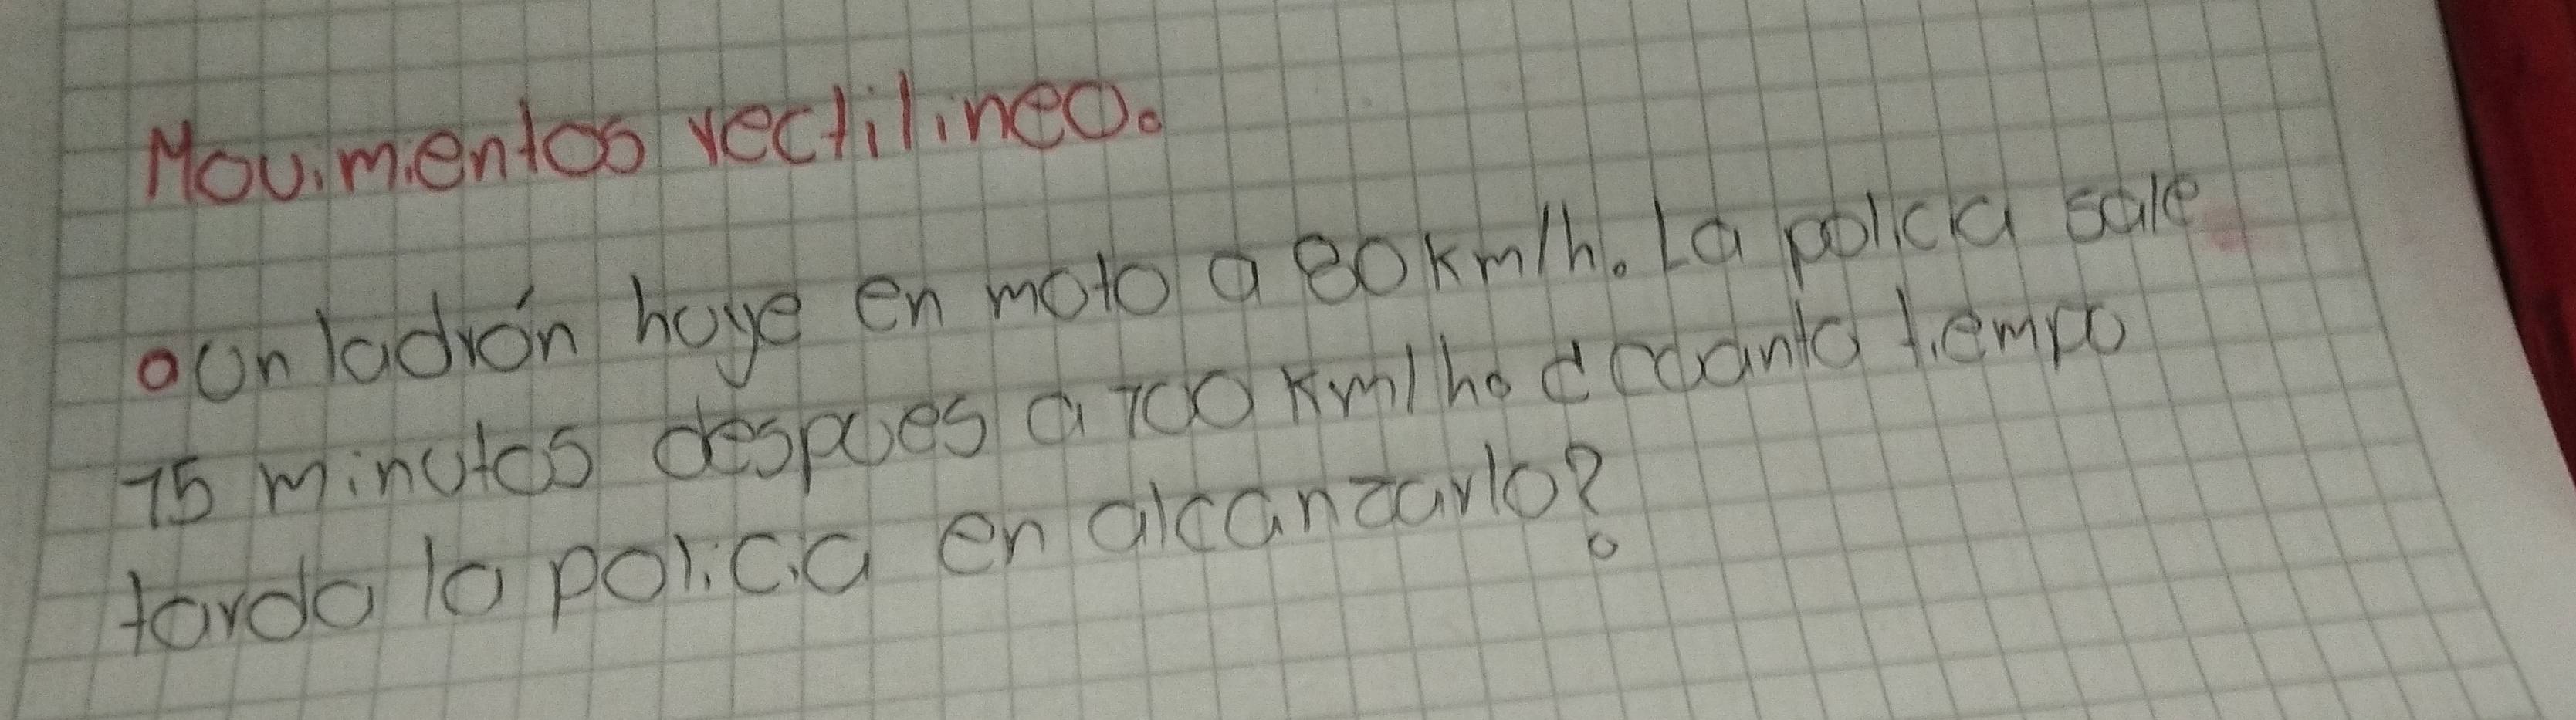 Movimentos rectilineo.
Un ladrón huye en moto a 80km/h. La policia sale
15 minutos despues a 100 km/h. ¿cuanto tiempo
tarda la policia en alcanzarlo?